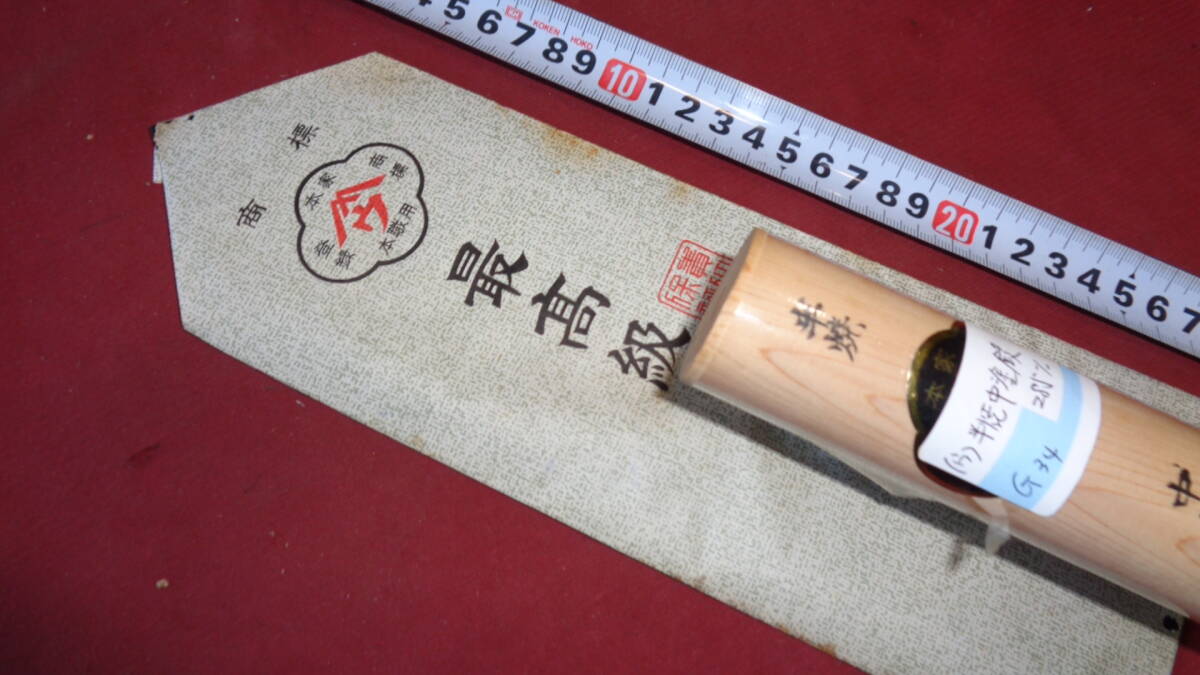 4 5 6 7 8 9 10 1 2 3 4 5 6 7 8 9 20 1 2 3 4 5 6 7
KOKEN HOKO
商標
本家
商標
登録
本職用
最高級
責
保
半焼
本家
半焼中塗
G34
中